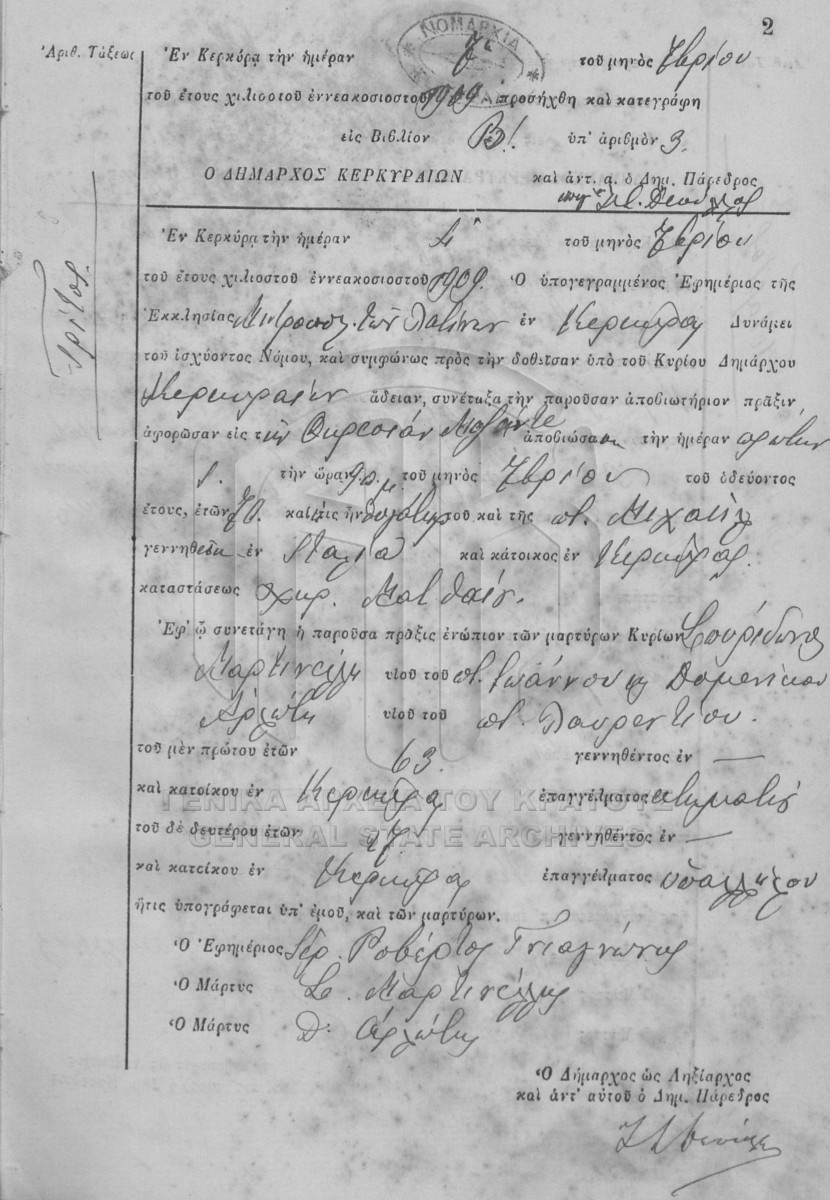 2
ΝΟΜΑΡΧΙΑ
Ἀριθ. Τάξεως
Ἐν Κερκύρᾳ τὴν ἡμέραν 7 τοῦ μηνὸς 7βρίου
τοῦ ἔτους χιλιοστοῦ ἐννεακοσιοστοῦ 1909 προσήχθη καὶ κατεγράφη
εἰς Βιβλίον Β! ὑπ' ἀριθμὸν 3.
Ο ΔΗΜΑΡΧΟΣ ΚΕΡΚΥΡΑΙΩΝ καὶ ἀντ. α. ὁ Δημ. Πάρεδρος
Τρίτος.
Ἐν Κερκύρᾳ τὴν ἡμέραν τοῦ μηνὸς 7βρίου
τοῦ ἔτους χιλιοστοῦ ἐννεακοσιοστοῦ 1909. Ὁ ὑπογεγραμμένος Ἐφημέριος τῆς
Ἐκκλησίας Μητροπόλ. τῶν Λατίνων ἐν Κερκύρᾳ Δυνάμει
τοῦ ἰσχύοντος Νόμου, καὶ συμφώνως πρὸς τὴν δοθεῖσαν ὑπὸ τοῦ Κυρίου Δημάρχου
Κερκυραίων ἄδειαν, συνέταξα τὴν παροῦσαν ἀποβιωτήριον πρᾶξιν
ἀφορῶσαν εἰς τὴν ἀποβιώσασαν τὴν ἡμέραν πρώτην
1. τὴν ὥραν 9 π.μ. τοῦ μηνὸς 7βρίου τοῦ ὁδεύοντος
ἔτους, ἐτῶν 70. καὶ τις ἦν θυγάτηρ τοῦ καὶ τῆς ποτ. Μιχαὴλ
γεννηθεῖσα ἐν Ἰταλίᾳ καὶ κάτοικος ἐν Κερκύρᾳ.
καταστάσεως χήρ. Ματθαίου.
Ἐφ' ᾧ συνετάγη ἡ παροῦσα πρᾶξις ἐνώπιον τῶν μαρτύρων Κυρίων Σπυρίδωνος
Μαρτινέλλη υἱοῦ τοῦ ποτ. Ἰωάννου κ Δομενίκου
Ἀρλώτη υἱοῦ τοῦ ποτ. Λαυρεντίου.
τοῦ μὲν πρώτου ἐτῶν 63. γεννηθέντος ἐν —
καὶ κατοίκου ἐν Κερκύρᾳ ἐπαγγέλματος κτηματίου
ΓΕΝΙΚΑ ΑΡΧΕΙΑ ΤΟΥ ΚΡΑΤΟΥΣ
τοῦ δὲ δευτέρου ἐτῶν γεννηθέντος ἐν —
GENERAL STATE ARCHIVES
καὶ κατοίκου ἐν Κερκύρᾳ ἐπαγγέλματος ὑπαλλήλου
ἥτις ὑπογράφεται ὑπ' ἐμοῦ, καὶ τῶν μαρτύρων.
Ὁ Ἐφημέριος Σερ. Ροβέρτος
Ὁ Μάρτυς Σ. Μαρτινέλλης
Ὁ Μάρτυς Δ. Ἀρλώτης
Ὁ Δήμαρχος ὡς Ληξίαρχος
καὶ ἀντ' αὐτοῦ ὁ Δημ. Πάρεδρος